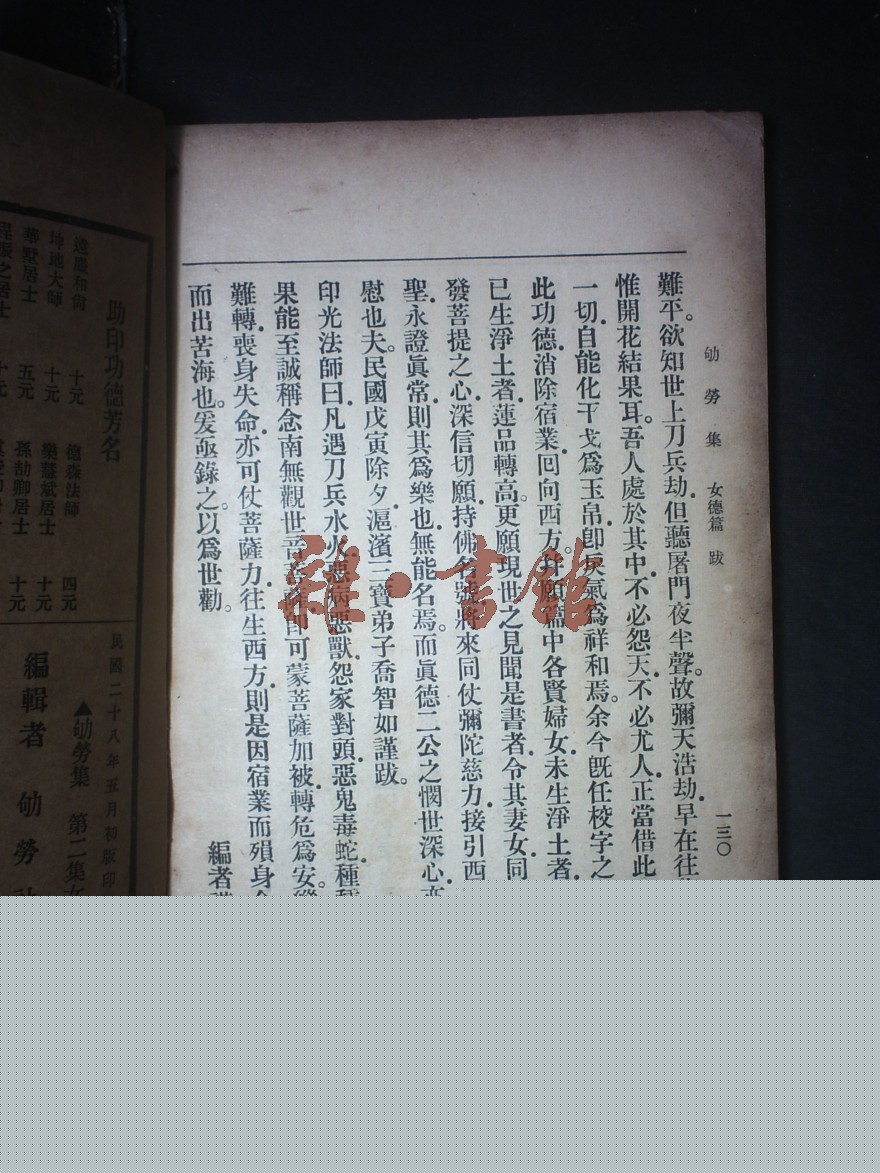 劬勞集　女德篇　跋
一三〇
難平。欲知世上刀兵劫．但聽屠門夜半聲。故彌天浩劫．早在往
惟開花結果耳。吾人處於其中．不必怨天．不必尤人．正當借此
一切．自能化干戈爲玉帛．卽戾氣爲祥和焉。余今旣任校字之
此功德．消除宿業．回向西方。幷願篇中各賢婦女．未生淨土者．
已生淨土者．蓮品轉高。更願現世之見聞是書者．令其妻女．同
發菩提之心．深信切願．持佛名號．將來同仗彌陀慈力．接引西
聖．永證眞常．則其爲樂也．無能名焉。而眞德二公之憫世深心．亦
慰也夫。民國戊寅除夕．滬濱三寶弟子喬智如謹跋。
印光法師曰．凡遇刀兵水火．惡病惡獸．怨家對頭．惡鬼毒蛇．種種
果能至誠稱念南無觀世音菩薩．卽可蒙菩薩加被．轉危爲安。
難轉．喪身失命．亦可仗菩薩力．往生西方．則是因宿業而殞身
而出苦海也。爰亟錄之．以爲世勸。
編者
雜·書館
助印功德芳名
和尙　十元　德森法師　四元
坤地大師　十元　樂慧斌居士　十元
華墅居士　五元　孫劼卿居士　十元
之居士　十元
民國二十八年五月初版印
▲劬勞集　第二集女
編輯者　劬勞社